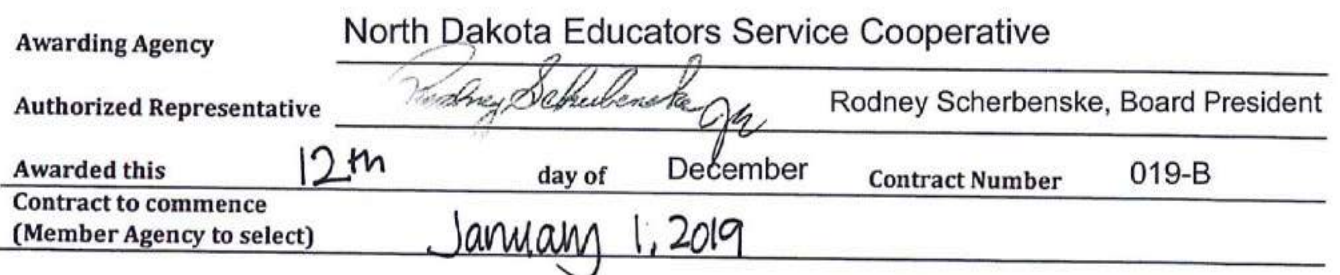 Awarding Agency North Dakota Educators Service Cooperative
Authorized Representative Rodney Scherbenske Rodney Scherbenske, Board President
Awarded this 12th day of December Contract Number 019-B
Contract to commence
(Member Agency to select) January 1, 2019